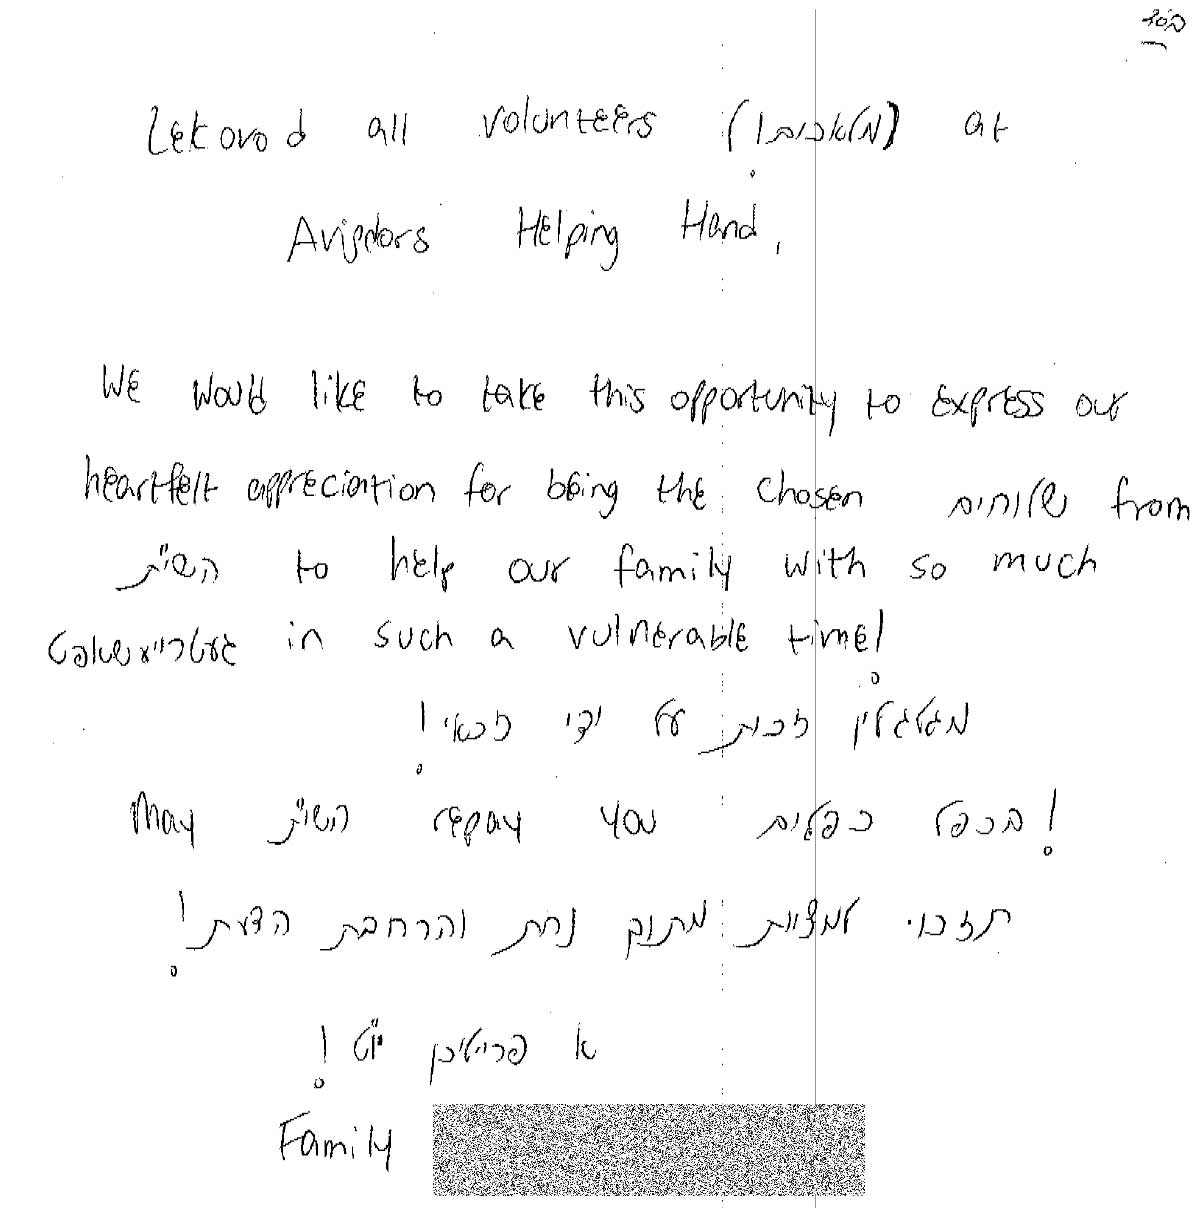 בס"ד
Lekovod all volunteers (מלאכים!) at
Avigdors Helping Hand,
We would like to take this opportunity to express our
heartfelt appreciation for being the chosen שלוחים from
השי"ת to help our family with so much
געטריישאפט in such a vulnerable time!
מגלגלין זכות על ידי זכאי!
May השי"ת repay you בכפל כפלים!
תזכו למצוות מתוך נחת והרחבת הדעת!
א פרייליכן יו"ט!
Family